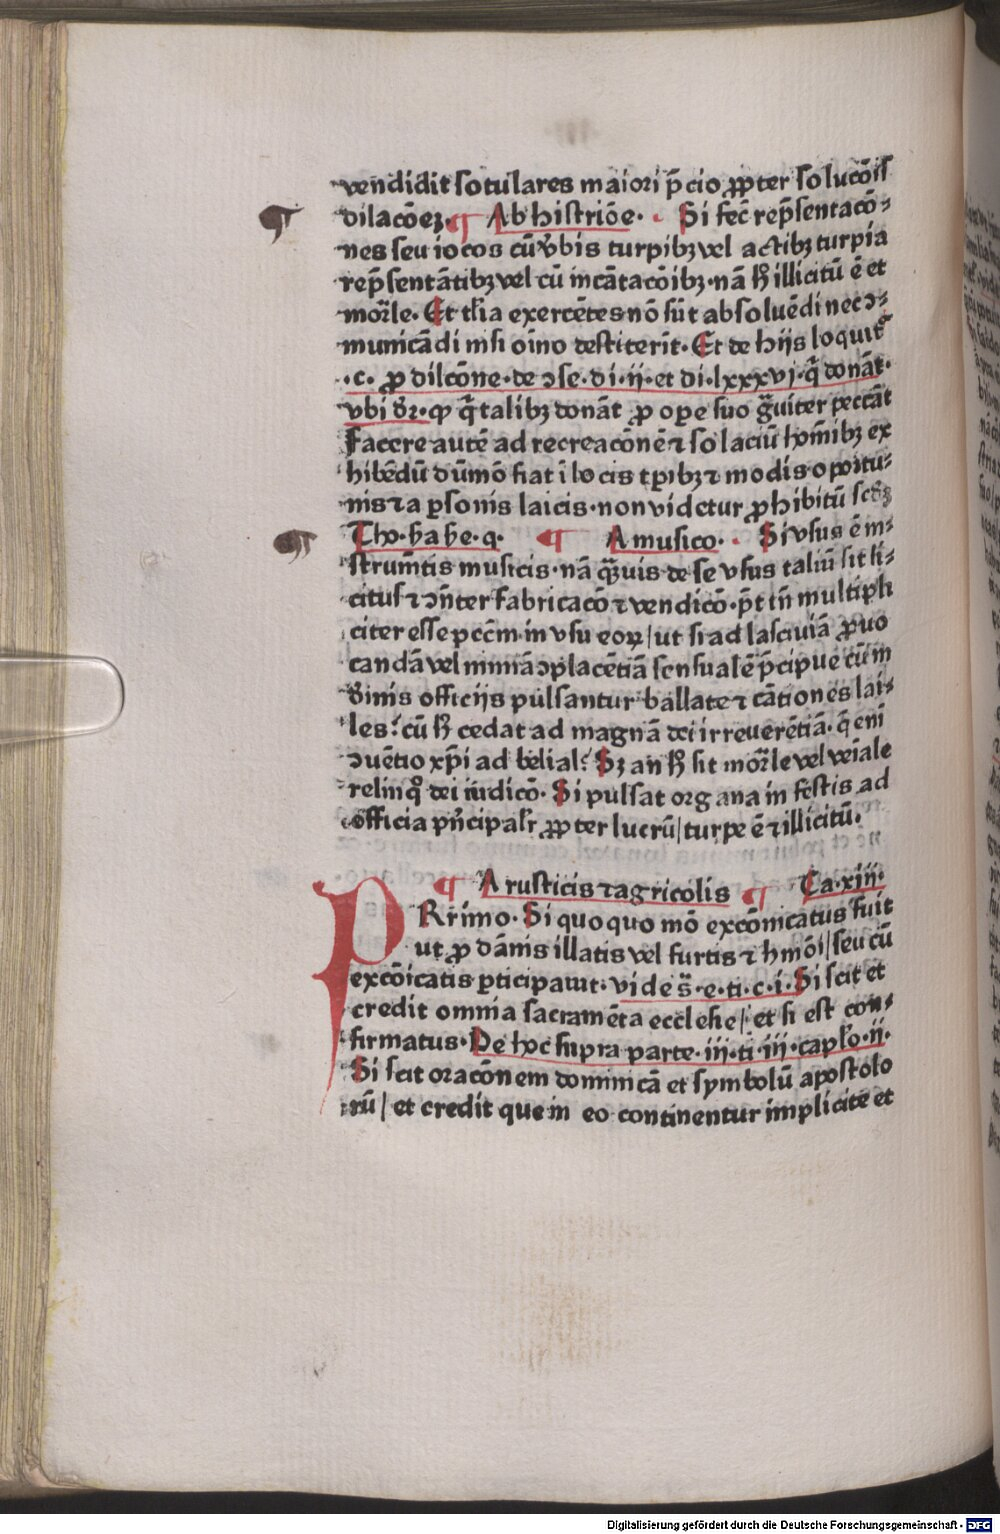 vendidit sotulares maiori p̄cio ꝓpter solucōis
dilacōeꝫ. ¶ Ab histriōe. Si fec̄ rep̄sentacō⸗
nes seu iocos cū v̄bis turpibꝫ vel actibꝫ turpia
rep̄sentātibꝫ vel cū incātacōibꝫ. nā h̄ illicitū ē et
mor̄le. Et tl̄ia exercētes nō sūt absoluēdi nec ↄ⸗
municādi nisi oīno destiterīt. Et de hijs loquit᷑
.c. ꝓ dilcōne. de ↄse. di. ij. et di. lxxxvj. q̄ donāt.
vbi dr̄. ꝙ q̄ talibꝫ donāt ꝓ oꝑe suo g̃uiter peccāt
Facere autē ad recreacōnē ⁊ solaciū hoīnibꝫ ex
hibēdū dūmō fiat ī locis tꝑibꝫ ⁊ modis oportu⸗
nis ⁊ a ꝑsonis laicis. non videtur ꝓhibitū scd̄ꝫ
Tho. ba be. q. ¶ A musico. Si vsus ē in⸗
strum̄tis musicis. nā q̄uis de se vsus taliū sit li⸗
citus ⁊ ↄn̄ter fabricacō ⁊ vendicō. p̄t tn̄ multipli
citer esse pccm̄ in vsu eoꝝ / ut si ad lasciuiā ꝓuo
candā vel nimiā ↄplacētiā sensualē p̄cipue cū in
diuinis officijs pulsantur ballate ⁊ cātiones lai⸗
les? cū h̄ cedat ad magnā dei irreuerētiā. q̄ enī
ↄuētio xp̄i ad belial? Sꝫ an h̄ sit mor̄le vel veīale
relinq̄ dei iudicō. Si pulsat organa in festis ad
officia pn̄cipalr̄ ꝓpter lucrū / turpe ē ⁊ illicitū.
¶ A rusticis ⁊ agricolis ¶ Ca. xiij.
PRrimo. Si quoquo mō excōnicatus fuit
ut ꝓ dānis illatis vel furtis ⁊ hmōi / seu cū
excōicatis ꝑticipauit. vide s̄. e. ti. c. i. Si scit et
credit omnia sacramēta ecclesie / et si est con⸗
firmatus. De hoc supra parte. iij. ti. iij. capl̄o. ij.
Si scit oracōnem dominicā et symbolū apostolo
rū / et credit que in eo continentur implicite et
Digitalisierung gefördert durch die Deutsche Forschungsgemeinschaft - DFG